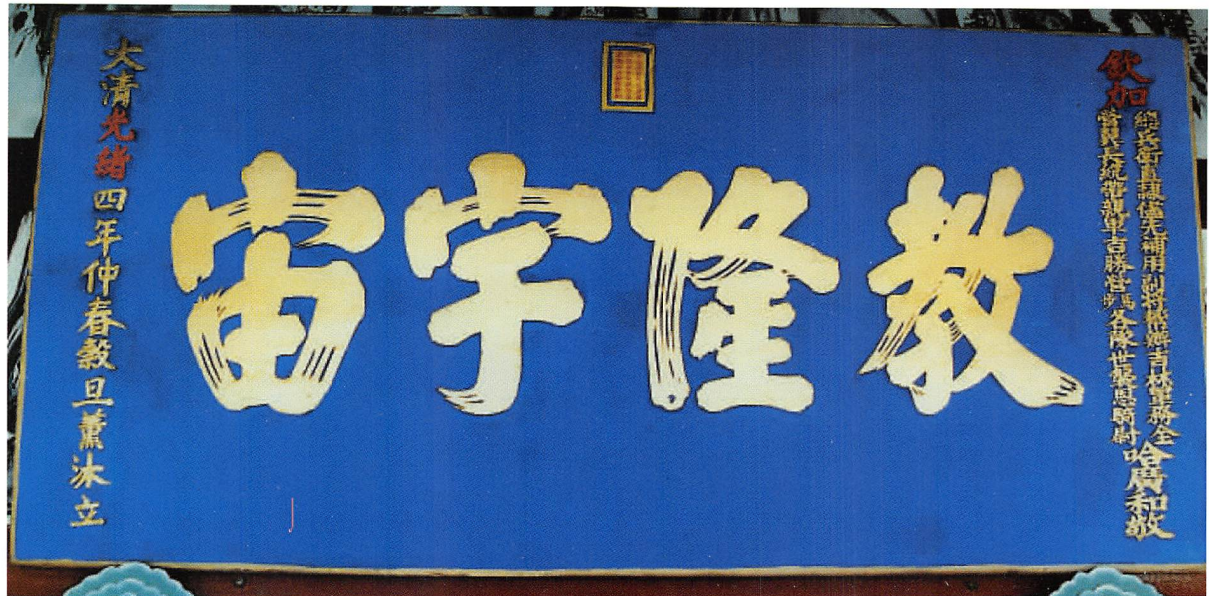 欽加
總兵銜直隸儘先補用副將幫辦吉林軍務全
營翼長統帶親軍吉勝營馬步各隊世襲恩騎尉
哈廣和敬
教隆宇宙
大清光緒四年仲春穀旦薰沐立